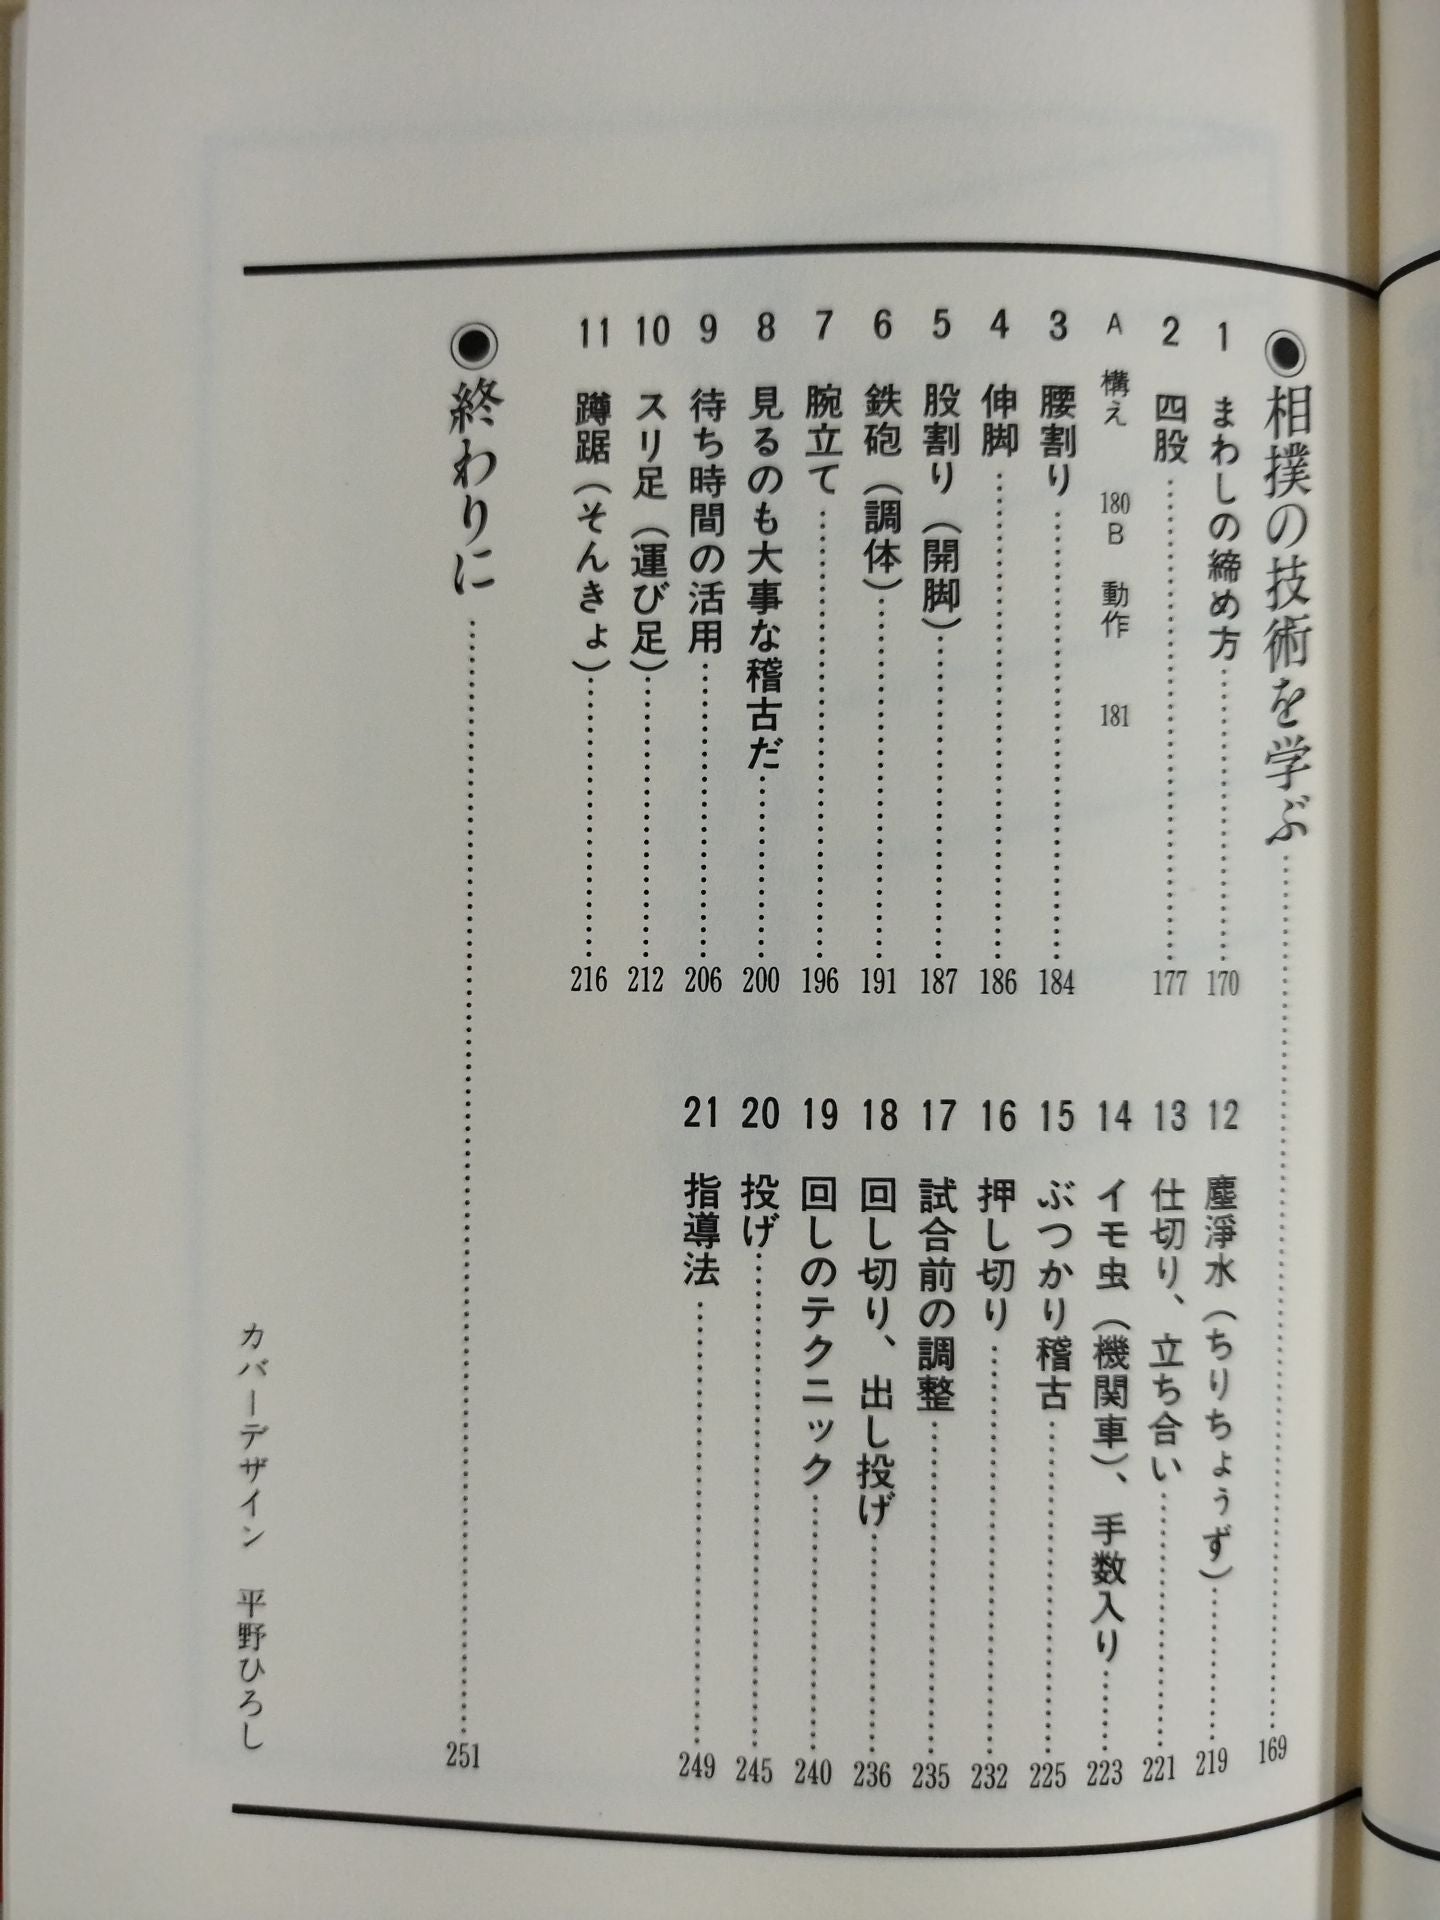 ◉相撲の技術を学ぶ……169
1 まわしの締め方……170
2 四股……177
A 構え 180 B 動作 181
3 腰割り……184
4 伸脚……186
5 股割り（開脚）……187
6 鉄砲（調体）……191
7 腕立て……196
8 見るのも大事な稽古だ……200
9 待ち時間の活用……206
10 スリ足（運び足）……212
11 蹲踞（そんきょ）……216
12 塵浄水（ちりちょうず）……219
13 仕切り、立ち合い……221
14 イモ虫（機関車）、手数入り……223
15 ぶつかり稽古……225
16 押し切り……232
17 試合前の調整……235
18 回し切り、出し投げ……236
19 回しのテクニック……240
20 投げ……245
21 指導法……249
◉終わりに……251
カバーデザイン 平野ひろし